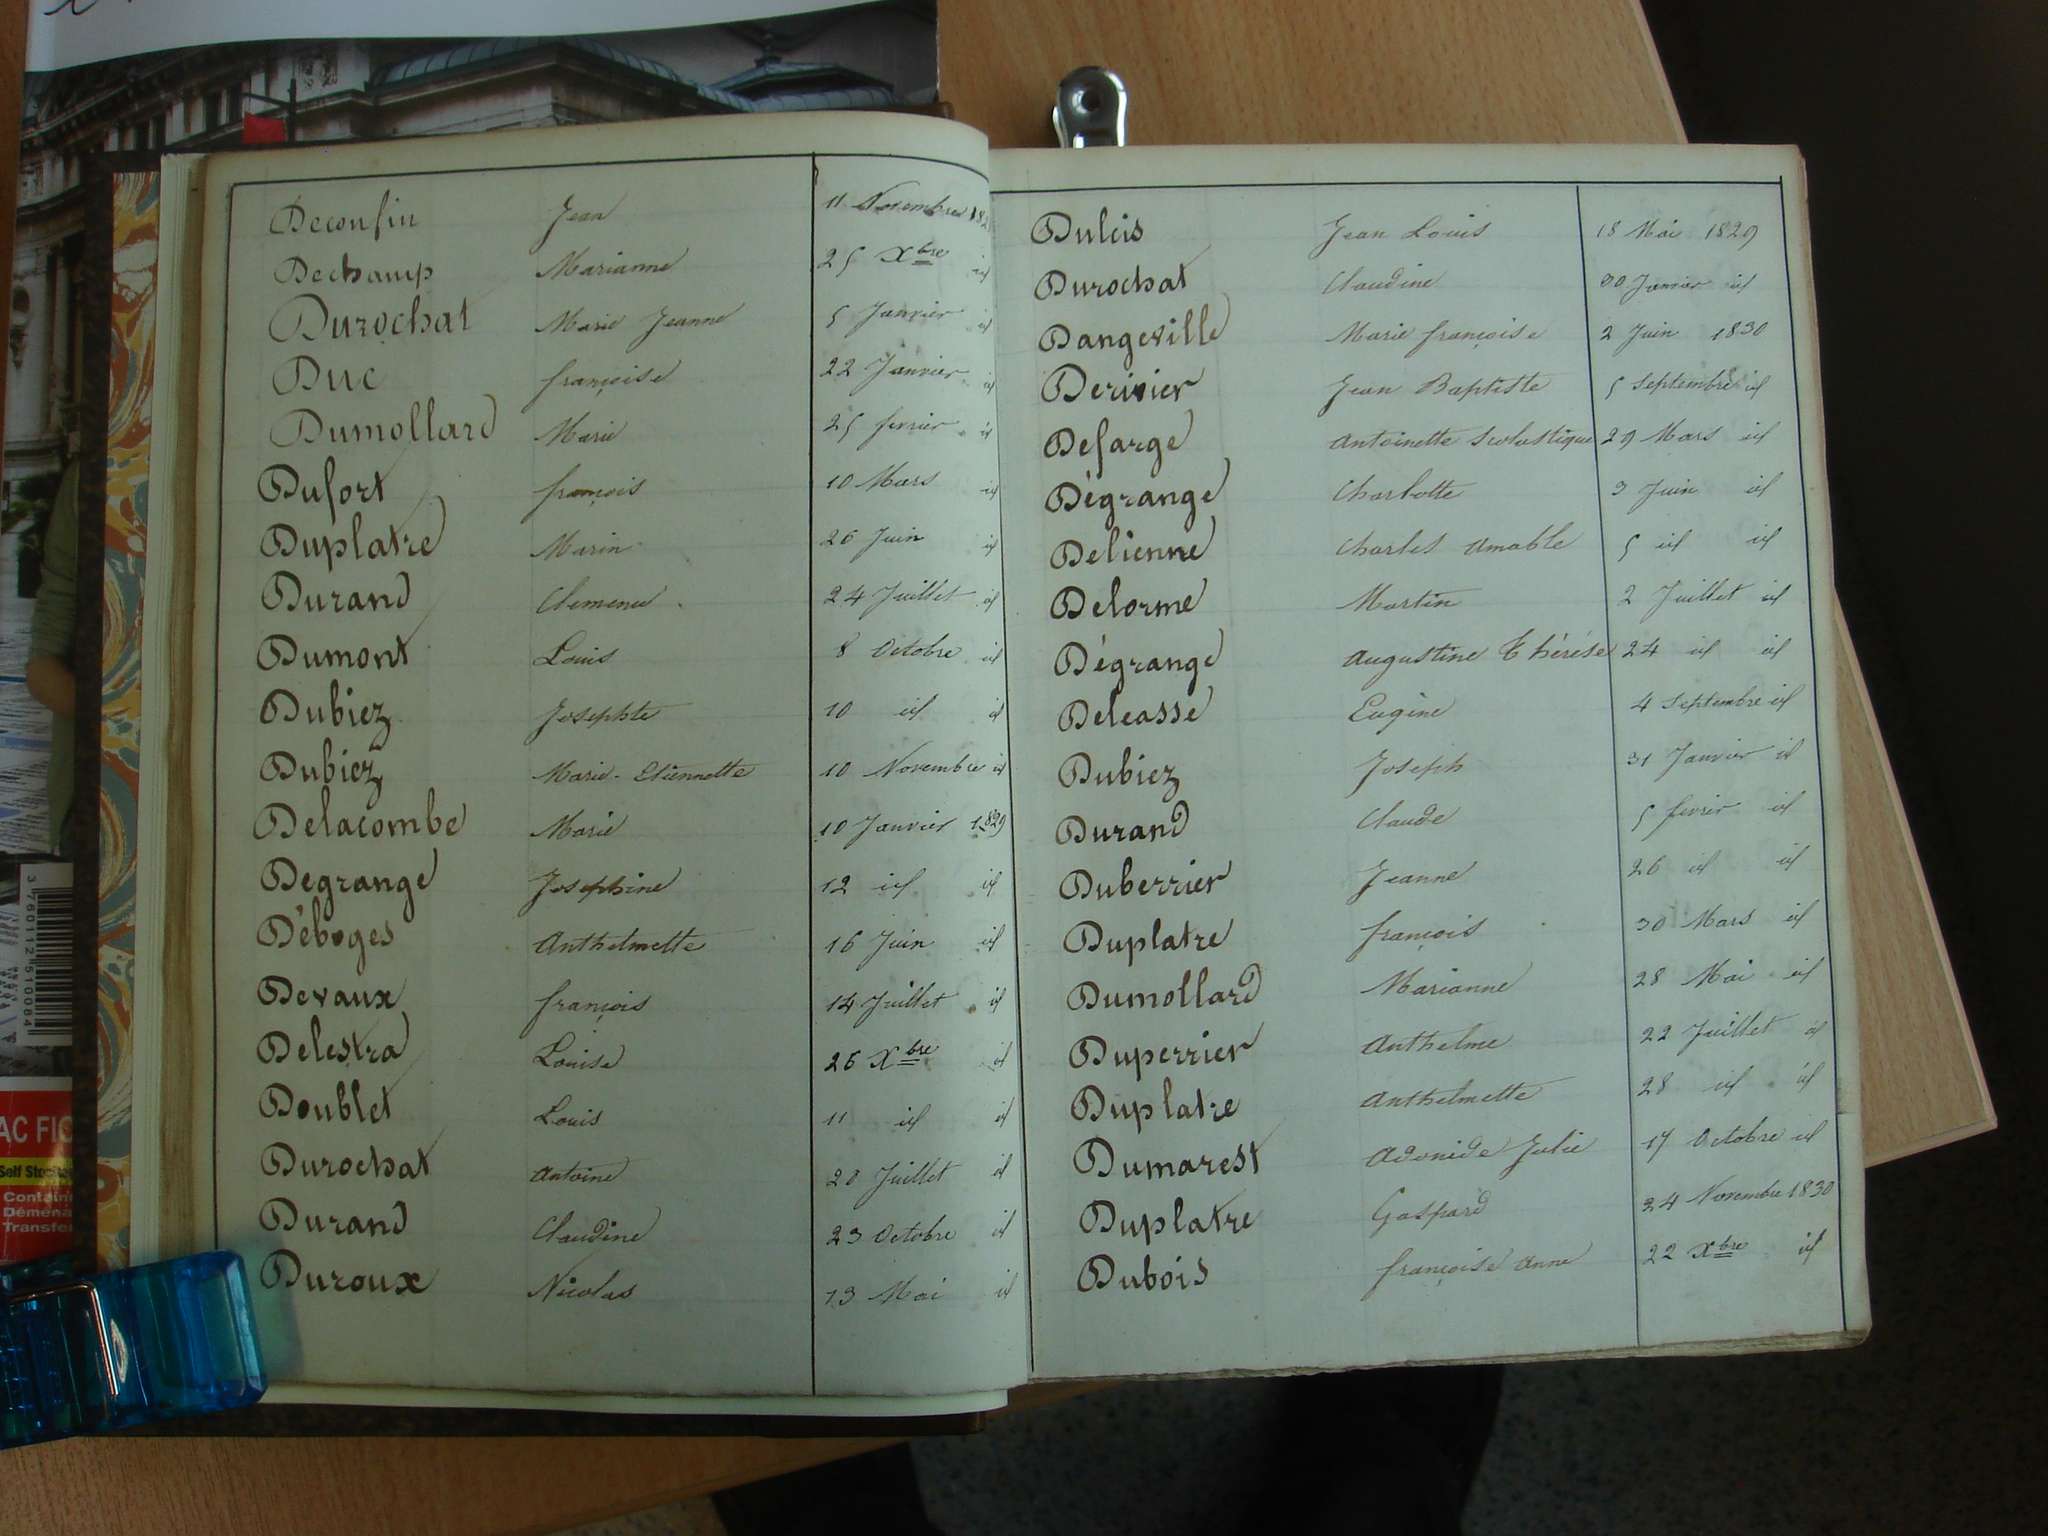 Deconfin Jean 11 Novembre 182
Dechamp Marianne 25 Xbre id
Durochat Marie Jeanne 5 Janvier id
Duc françoise 22 Janvier id
Dumollard Marie 25 fevrier id
Dufort françois 10 Mars id
Duplatre Marin 26 Juin id
Durand Clemence 24 Juillet id
Dumont Louis 8 Octobre id
Dubiez Josephte 10 id id
Dubiez Marie-Etiennette 10 Novembre id
Delacombe Marie 10 Janvier 1829
Degrange Josephine 12 id id
Déboges Anthelmette 16 Juin id
Devaux françois 14 Juillet id
Delestra Louise 26 Xbre id
Doublet Louis 11 id id
Durochat Antoine 20 Juillet id
Durand Claudine 23 Octobre id
Duroux Nicolas 13 Mai id
Dulcis Jean Louis 18 Mai 1829
Durochat Claudine 30 Janvier id
Dangeville Marie françoise 2 Juin 1830
Derivier Jean Baptiste 5 Septembre id
Defarge Antoinette Scolastique 29 Mars id
Dégrange Charlotte 3 Juin id
Delienne Charles Amable 5 id id
Delorme Martin 2 Juillet id
Dégrange Augustine Thérése 24 id id
Delcasse Eugine 4 Septembre id
Dubiez Joseph 31 Janvier id
Durand Claude 5 fevrier id
Duberrier Jeanne 26 id id
Duplatre françois 30 Mars id
Dumollard Marianne 28 Mai id
Duperrier Anthelme 22 Juillet id
Duplatre Anthelmette 28 id id
Dumarest Adonide Julie 17 Octobre id
Duplatre Gaspard 24 Novembre 1830
Dubois françoise Anne 22 Xbre id
3 760112 510084
AC FIC
Self Sto
Contain
Déména
Transfe